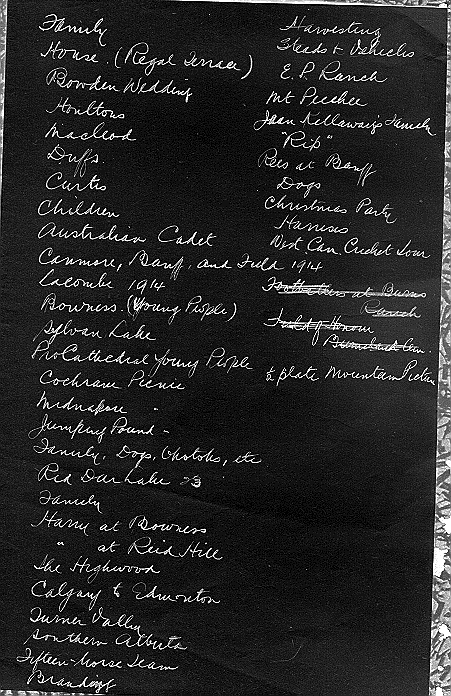 Family
House. (Regal Terrace)
Bowden Wedding
Houltons
Macleod
Duffs.
Curtis
Children
Australian Cadet
Canmore, Banff, and Field 1914
Lacombe 1914
Bowness. (Young People)
Sylvan Lake
ProCathedral Young People
Cochrane Picnic
Midnapore "
Jumping Pound -
Family, Dogs, Okotoks, etc
Red Deer Lake
Family
Harry at Bowness
" at Reid Hill
The Highwood
Calgary to Edmonton
Turner Valley
Southern Alberta
Fifteen-Horse Team
Branding
Harvesting
Sleds & Vehicles
E. P. Ranch
Mt Peechee
Joan Kellaways Family
"Rip"
at Banff
Dogs
Christmas Party
Harrises
West Can. Cricket Tour
at Burns
Ranch
Field of Honour
½ plate Mountain Picture